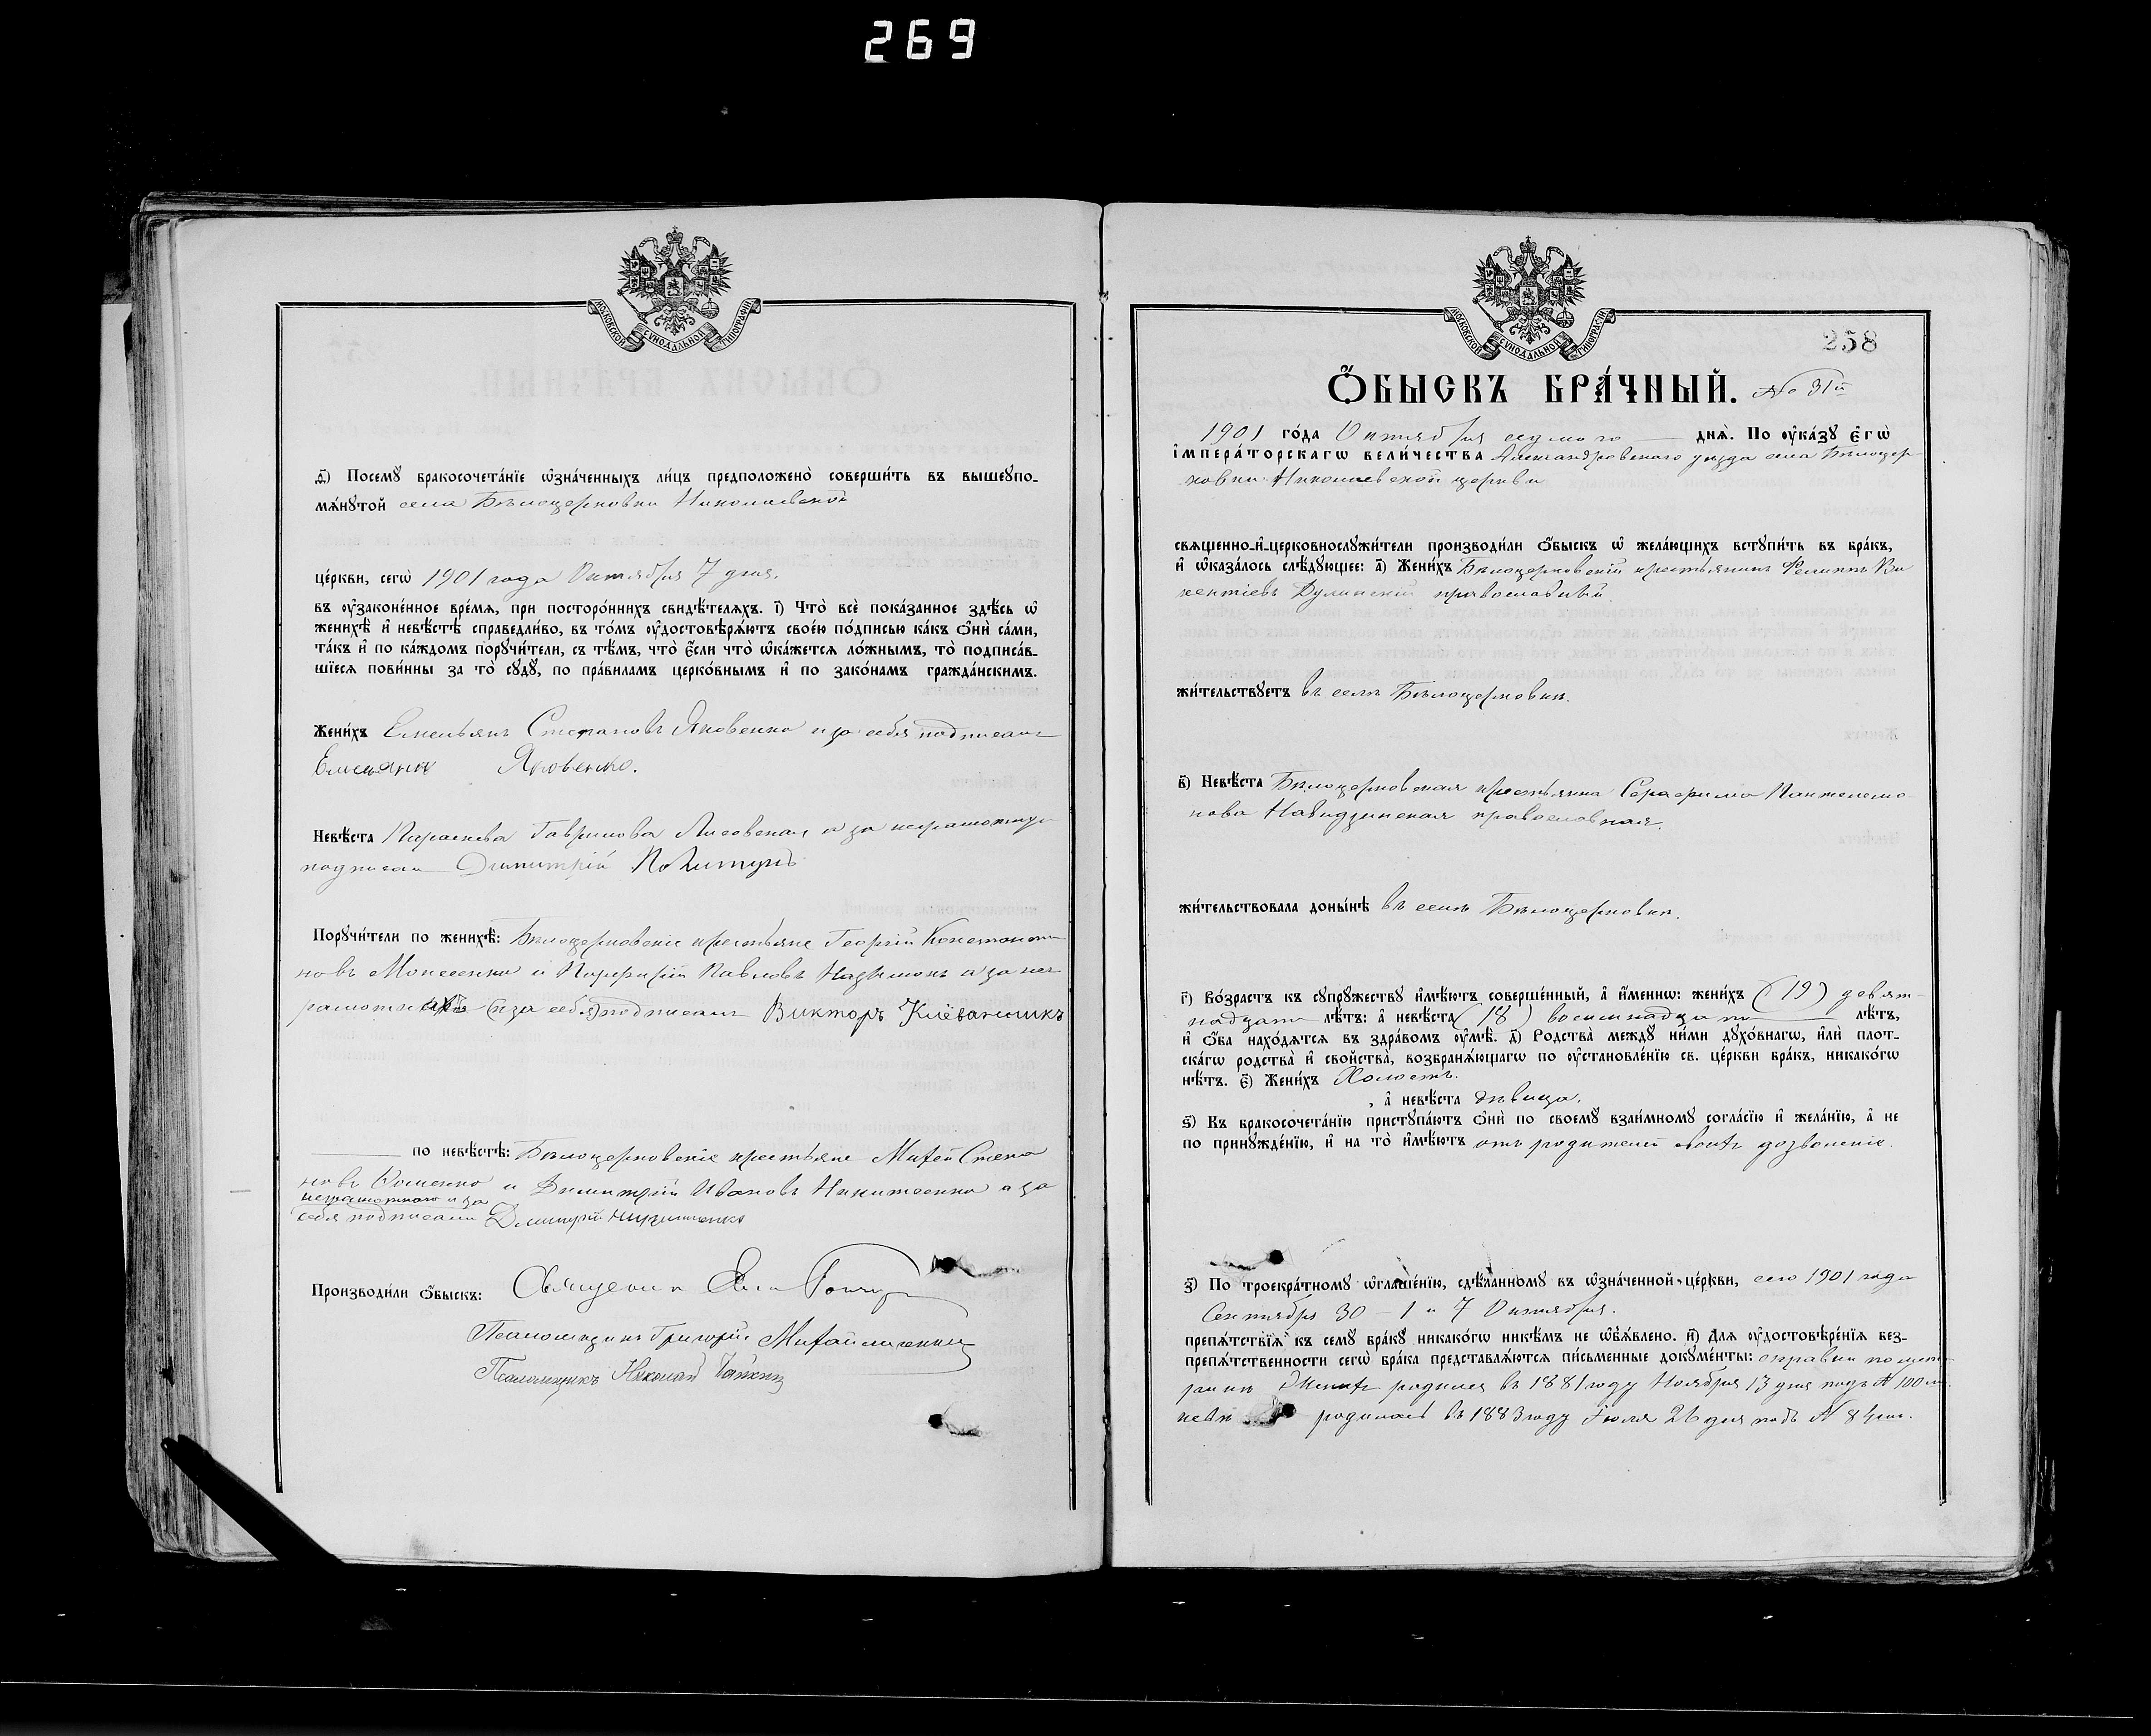 269
МОСКОВСКОЙ СѴНОДАЛЬНОЙ ТИПОГРАФІИ
д҃) Посемꙋ бракосочета́нїе ѡ҆зна́ченныхъ ли́цъ предположено̀ соверши́ть въ вышеꙋпо-
мѧ́нꙋтой села Бѣлоцерковки Николаевской
це́ркви, сегѡ̀ 1901 года Октября 7 дня.
въ ᲂу҆законе́нное вре́мѧ, при посторо́ннихъ свидѣ́телѧхъ. і҃) Что̀ всѐ пока́занное здѣ́сь ѡ҆
женихѣ̀ и҆ невѣ́стѣ справедли́во, въ то́мъ ᲂу҆достовѣрѧ́ютъ свое́ю по́дписью ка́къ ѻ҆нѝ са́ми,
та́къ и҆ по ка́ждомъ порꙋчи́тели, съ тѣ́мъ, что̀ є҆́сли что̀ ѡ҆ка́жетсѧ ло́жнымъ, то̀ подписа́в-
шїесѧ пови́нны за то̀ сꙋдꙋ̀, по пра́виламъ церко́внымъ и҆ по зако́намъ гражда́нскимъ.
Жени́хъ Емельянъ Стефановъ Яковенко и за себя подписалъ
Емельянъ Яковенко.
Невѣ́ста Параскева Гаврилова Лисовская а за неграмотную
подписал Димитрій
Порꙋчи́тели по женихѣ̀: Бѣлоцерковскіе крестьяне Георгій Константи
новъ Моисеенко и Порфирій Павловъ а за не
грамотныхъ (и за себя) подписалъ Викторъ
по невѣ́стѣ: Бѣлоцерковскіе крестьяне Михей Степа
новъ и Димитрій Ивановъ Никитченко а за
неграмотного и за
себя подписалъ Дмитрій
Производи́ли ѻ҆́быскъ: Священник
Псаломщикъ Григорій Михайличенко
Псаломщикъ Николай
МОСКОВСКОЙ СѴНОДАЛЬНОЙ ТИПОГРАФІИ
258
Ѻ҆́БЫСКЪ БРА́ЧНЫЙ. № 31й
1901 го́да Октября седмого днѧ̀. По ᲂу҆ка́зꙋ є҆гѡ̀
і҆мпера́торскагѡ вели́чества Александровского уезда села Бѣлоцер-
ковки Николаевской церкви
свѧщенно-и҆-церковнослꙋжи́тели производи́ли ѻ҆́быскъ ѡ҆ жела́ющихъ встꙋпи́ть въ бра́къ,
и҆ ѡ҆каза́лось слѣ́дꙋющее: а҃) Жени́хъ Бѣлоцерковскій крестьянинъ Феликсъ Ви
кентіевъ Дулинскій православный.
жи́тельствꙋетъ въ селѣ Бѣлоцерковки.
в҃) Невѣ́ста Бѣлоцерковская крестьянка Серафима Пантелеимо
нова православная.
жи́тельствовала доны́нѣ въ селѣ Бѣлоцерковки.
г҃) Во́зрастъ къ сꙋпрꙋ́жествꙋ и҆мѣ́ютъ соверше́нный, а҆ и҆́меннѡ: жени́хъ (19) девят-
надцати лѣ́тъ: а҆ невѣ́ста (18) восемнадцати лѣ́тъ,
и҆ ѻ҆́ба нахо́дѧтсѧ въ здра́вомъ ᲂу҆мѣ̀. д҃) Родства̀ междꙋ ни́ми дꙋхо́внагѡ, и҆лѝ плот-
ска́гѡ родства̀ и҆ свойства̀, возбранѧ́ющагѡ по ᲂу҆становле́нїю св. це́ркви бра́къ, никако́гѡ
нѣ́тъ. є҃) Жени́хъ Холостъ.
, а҆ невѣ́ста дѣвица.
ѕ҃) Къ бракосочета́нїю пристꙋпа́ютъ ѻ҆нѝ по своемꙋ̀ взаи́мномꙋ согла́сїю и҆ жела́нїю, а҆ не
по принꙋжде́нїю, и҆ на то̀ и҆мѣ́ютъ отъ родителей своихъ дозволеніе.
з҃) По троекра́тномꙋ ѡ҆глаше́нїю, сдѣ́ланномꙋ въ ѡ҆зна́ченной це́ркви, сего 1901 года
Сентября 30 - 1 и 7 Октября.
препѧ́тствїѧ къ семꙋ̀ бра́кꙋ никако́гѡ никѣ́мъ не ѡ҆б̾ѧ́влено. и҃) Для ᲂу҆достовѣре́нїѧ без-
препѧ́тственности сегѡ̀ бра́ка представлѧ́ютсѧ пи́сьменные докꙋме́нты: справки по мет-
рикѣ Женихъ родился въ 1881 году Ноября 13 дня подъ № 100
невѣ родилась въ 1883 году Іюля 26 дня подъ № 84